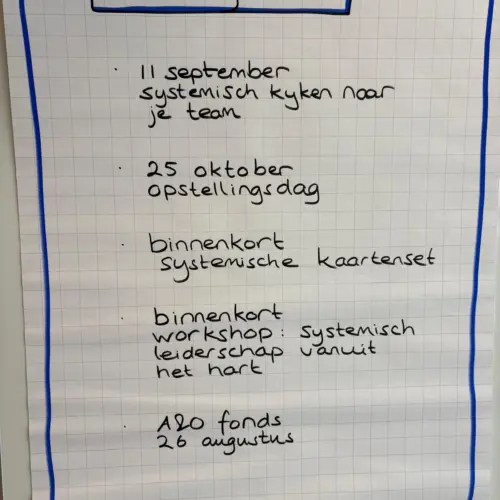 · 11 september
systemisch kyken naar
je team
· 25 oktober
opstellingsdag
· binnenkort
systemische kaartenset
· binnenkort
workshop: systemisch
leiderschap vanuit
het hart
· A&O fonds
26 augustus